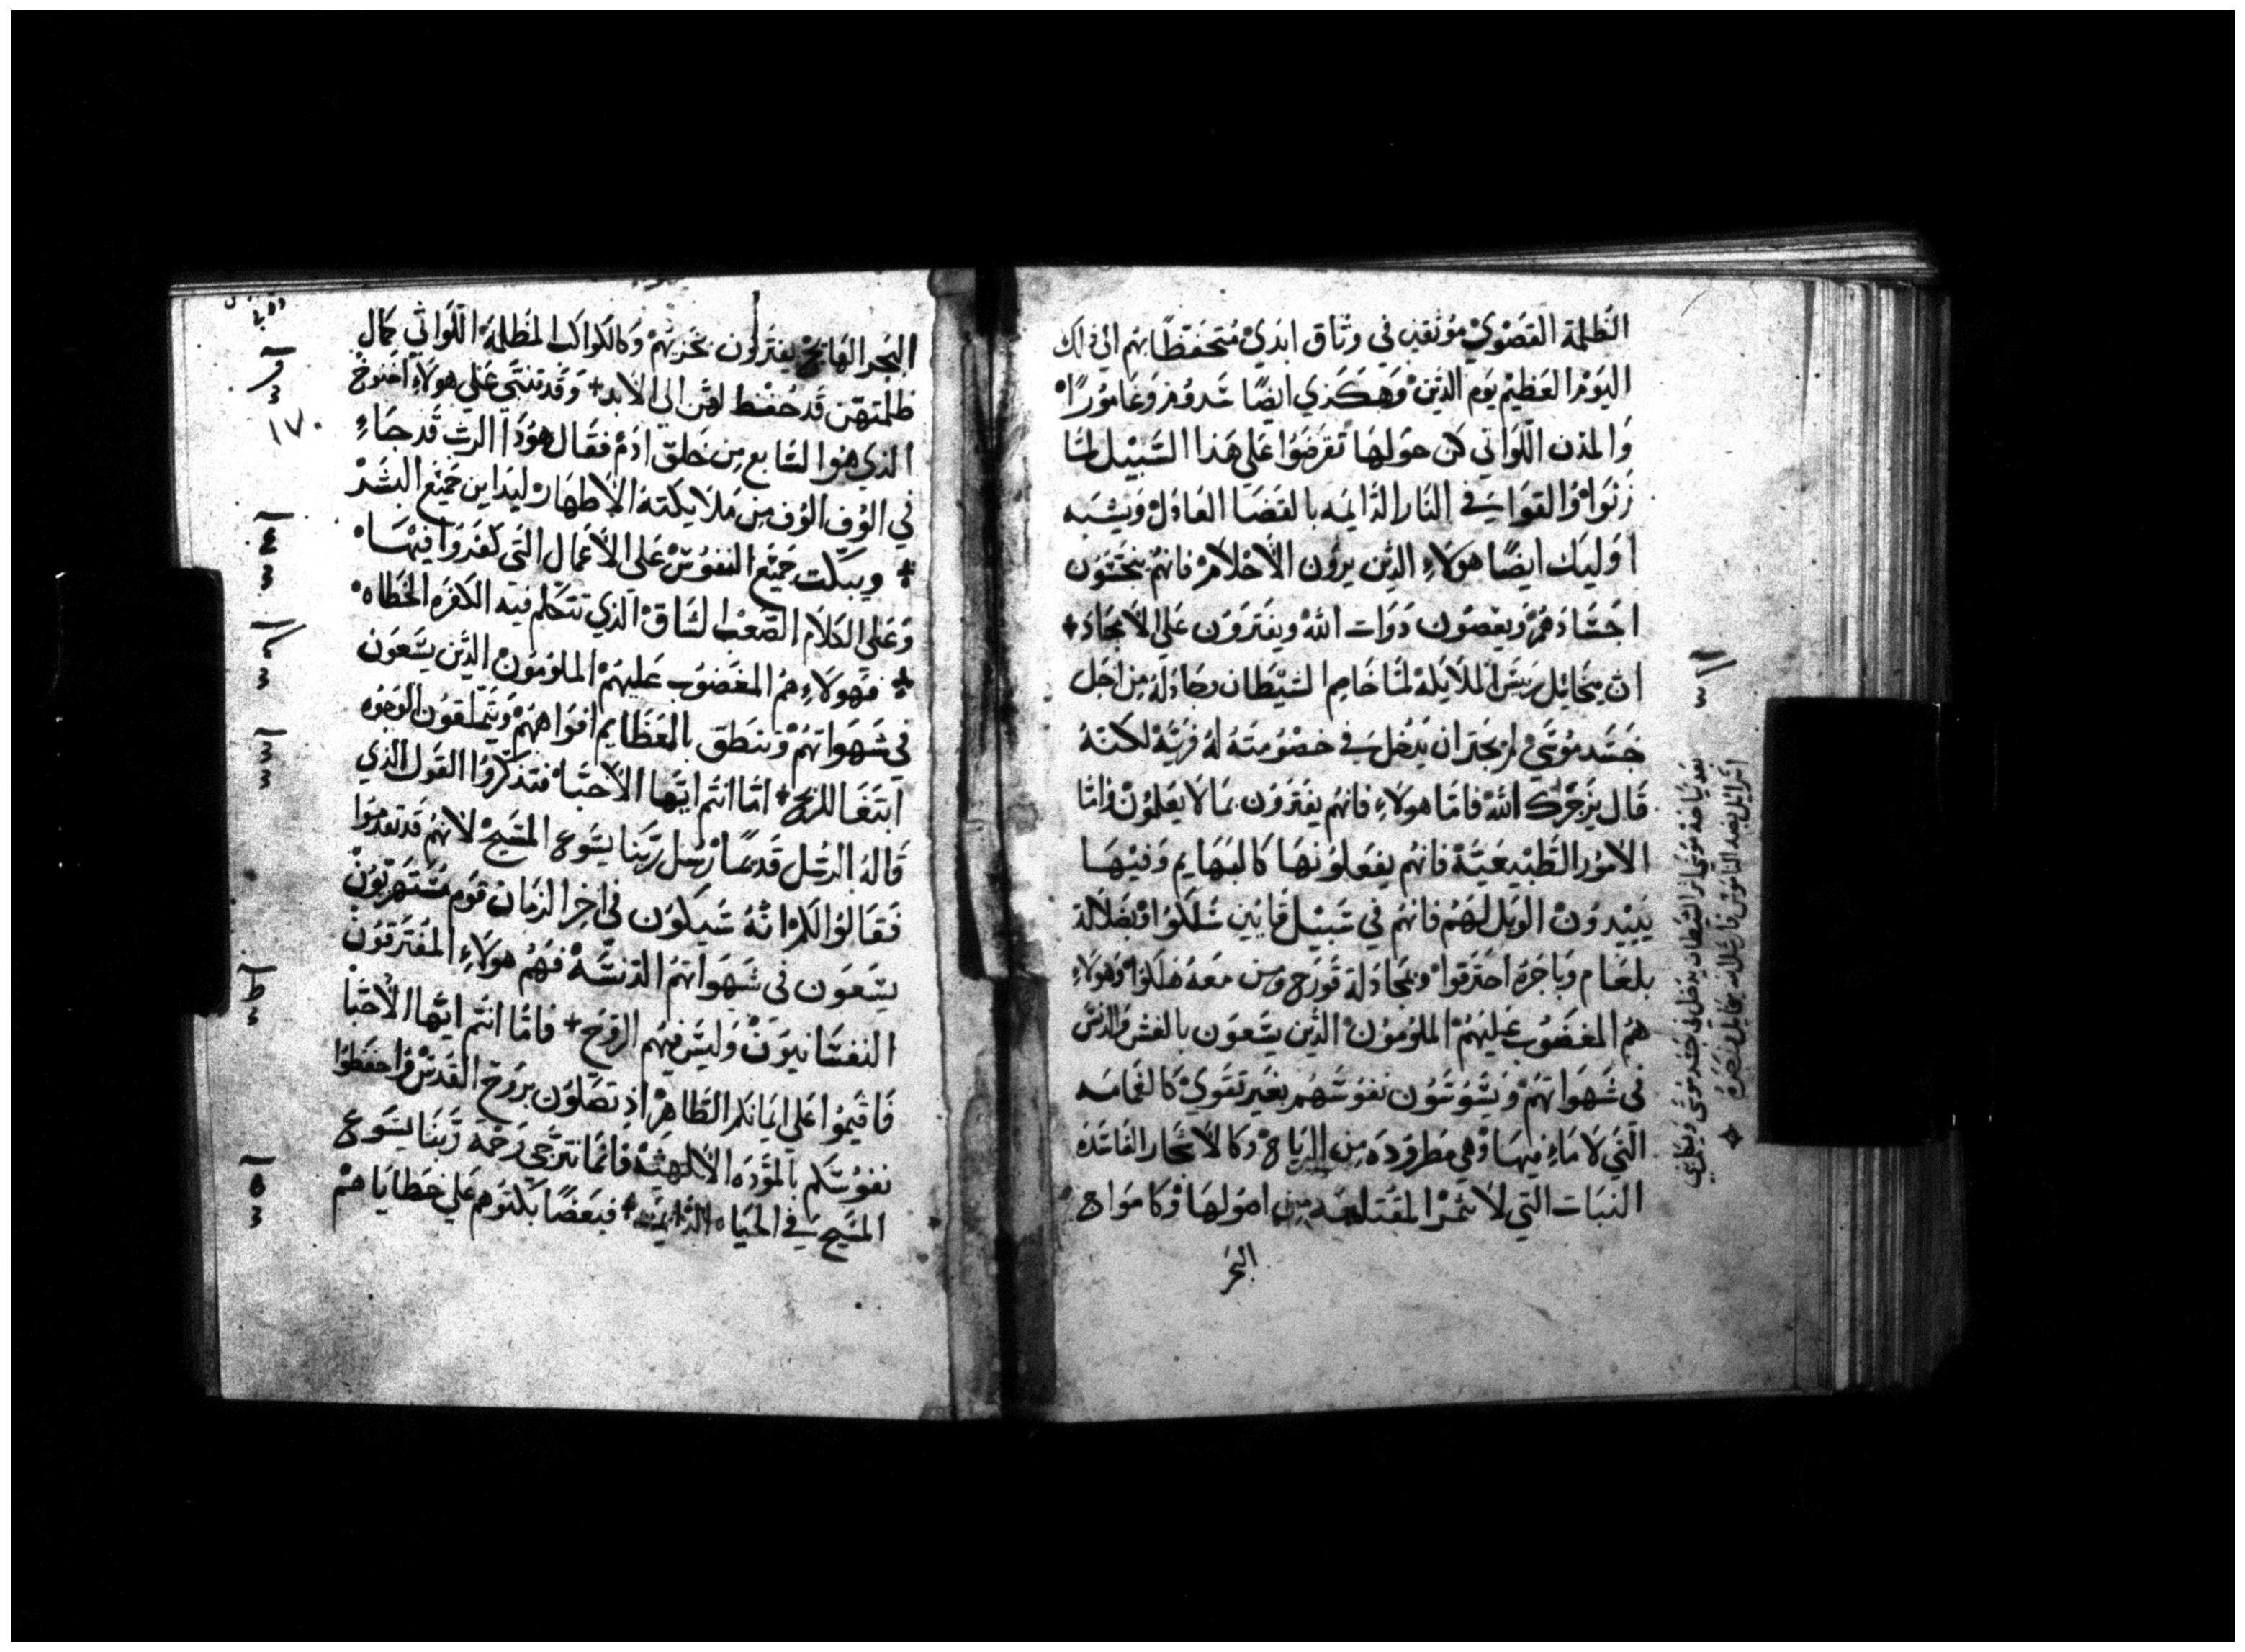 الظلمة القصوي موثقين في وثاق ابدي متحفظا بهم الي ذلك
اليوم العظيم يوم الدين وهكذي ايضا سدوم وغامورا
والمدن اللواتي كن حولها تقرضوا علي هذا السبيل لما
زنوا والقوا في النار الدايمه بالقضا العادل ويشبه
اوليك ايضا هولاء الذين يرون الاحلام فانهم ينجسون
اجسادهم ويعصون دوات الله ويفترون علي الامجاد
ان ميخائيل رييس الملايكة لما خاصم الشيطان وجادله من اجل
جسد موسي لم يجتر ان يدخل في خصومته له فرية لكنه
قال يزجرك الله فاما هولاء فانهم يفترون بما لا يعلمون واما
الامور الطبيعية فانهم يفعلونها كالبهايم وفيها
يبيدون الويل لهم فانهم في سبيل قايين سلكوا وبضلالة
بلعام وباجره احترقوا وبمجادلة قورح ومن معه هلكوا وهولاء
هم المغضوب عليهم الملومون الذين يسعون بالغش والدنس
في شهواتهم ويسوسون نفوسهم بغير تقوي كالغمامه
التي لا ماء فيها وهي مطروده من الرياح وكالاشجار الفاسدة
النبات التي لا تثمر المقتلعه من اصولها وكامواج
البحر
بعد نياحة موسي اراد الشيطان يدخل في جسد موسي
اسراييل بعد الناموس فارسل الله ميخاييل
البحر الهايج يفترون بخزيهم وكالكواكب المظلمة اللواتي كمال
ظلمتهن قد حفظ لهن الي الابد وقد تنبي علي هولاء اخنوخ
١٧٠
الذي هوا السابع من خلق ادم فقال هوذا الرب قد جاء
في الوف الوف من ملايكته الاطهار ليداين جميع البشر
ويبكت جميع النفوس علي الاعمال التي كفروا فيها
وعلي الكلام الصعب الشاق الذي تتكلم فيه الكفره الخطاه
فهولاء هم المغضوب عليهم الملومون الذين يسعون
في شهواتهم وتنطق بالعظايم افواههم ويتملقون الوجوه
ابتغا للربح اما انتم ايها الاحبا فتذكروا القول الذي
قاله الرسل قديما رسل ربنا يسوع المسيح لانهم قد تقدموا
فقالوا لكم انه سيكون في اخر الزمان قوم مستهزيون
يسعون في شهواتهم الدنسة فهم هولاء المفترقون
النفسانيون وليس فيهم الروح فاما انتم ايها الاحبا
فاقيموا علي ايمانكم الطاهر اذ تصلون بروح القدس واحفظوا
نفوسكم بالمودة الالهية فانما نترجي رحمة ربنا يسوع
المسيح في الحياه الدايمه فبعضا بكتوهم علي خطاياهم